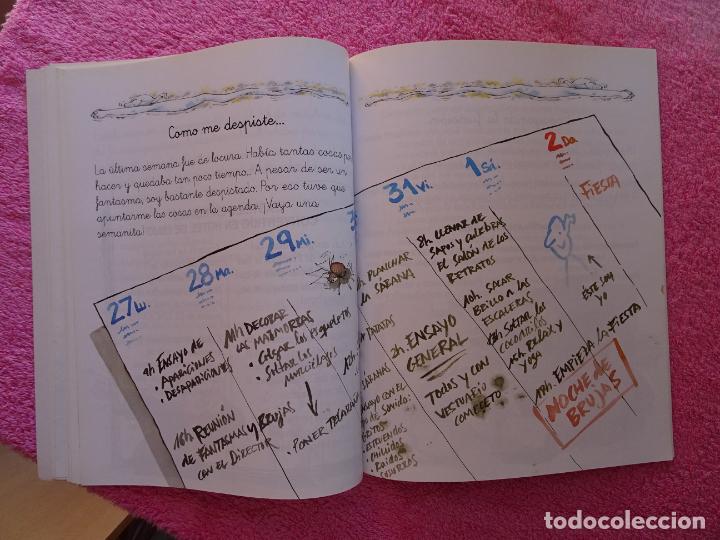 Como me despiste...
La última semana fue de locura. Había tantas cosas por
hacer y quedaba tan poco tiempo... A pesar de ser un
fantasma, soy bastante despistado. Por eso tuve que
apuntarme las cosas en la agenda. ¡Vaya una
semanita!
27 Lu.
ENSAYO DE
• APARICIONES
• DESAPARICIONES
18h. REUNIÓN
DE FANTASMAS Y BRUJAS
CON EL DIRECTOR
28 Ma.
DECORAR
LAS MAZMORRAS
• Colgar los esqueletos
• Soltar los
murciélagos
29 Mi.
• PONER TELARAÑAS
PLANCHAR
LA SÁBANA
PATATAS
SÁBANAS
ENSAYO CON EL
DE SONIDO:
GRITOS
• ESTRUENDOS
• CHILLIDOS
• RUIDOS
SUSURROS
31 Vi.
ENSAYO
GENERAL
TODOS Y CON
VESTUARIO
COMPLETO
1 Sá.
8h. LLENAR DE
SAPOS Y CULEBRAS
EL SALÓN DE LOS
RETRATOS
10h. SACAR
BRILLO A LAS
ESCALERAS
SOLTAR LOS
COCODRILOS
RELAX Y
YOGA
2 Do.
FIESTA
ÉSTE SOY
YO
EMPIEZA LA FIESTA
NOCHE DE
BRUJAS
todocoleccion.net